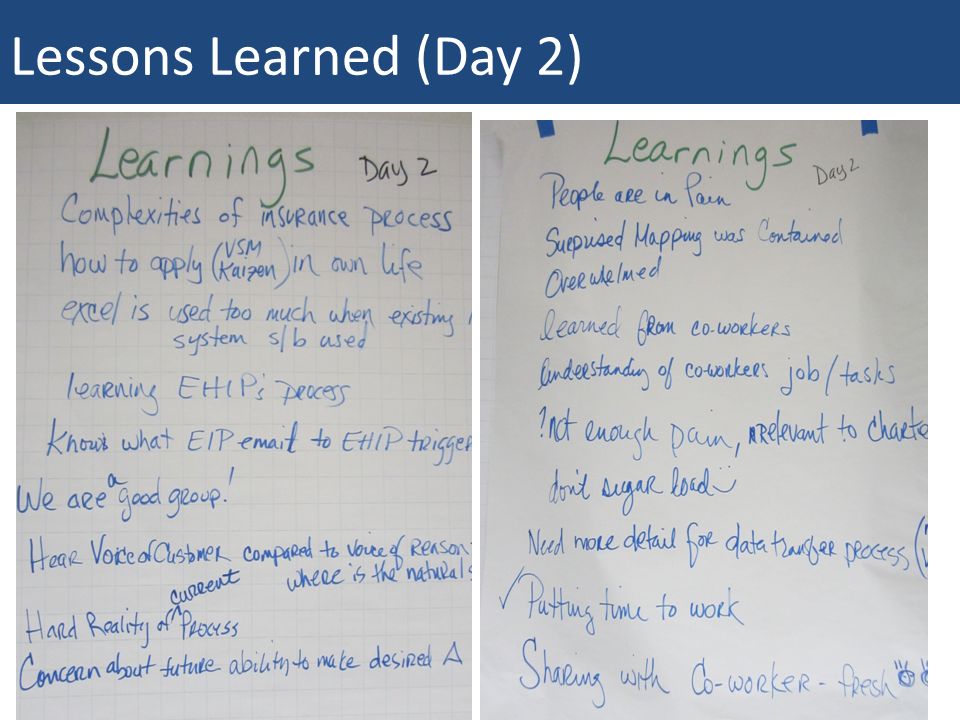 Lessons Learned (Day 2)
Learnings Day 2
Complexities of insurance process
how to apply (VSM Kaizen) in own life
excel is used too much when existing
system s/b used
learning EHIP's process
Knows what EIP email to EHIP trigger
We are a good group!
Hear Voice of Customer compared to voice of reason
where is the natural
Hard Reality of current Process
Concern about future ability to make desired Δ
Learnings Day 2
People are in Pain
Surprised Mapping was Contained
Overwhelmed
learned from co-workers
Understanding of coworkers job/tasks
? not enough pain, relevant to charte
don't sugar load
Need more detail for data transfer process (
✓ Putting time to work
Sharing with Co-worker - fresh